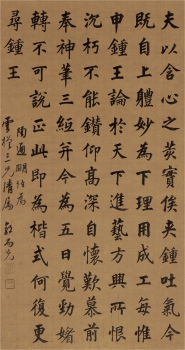 夫以含心之荄實俟夾鍾吐氣今
既自上體妙為下理用成工每惟
申鍾王論於天下進藝方興所恨
沉朽不能鑽仰高深自懷歎慕前
奉神筆三紙并今為五日覺勁媚
轉不可說正此即為楷式何復更
尋鍾王
陶通明帖為
三兄清屬